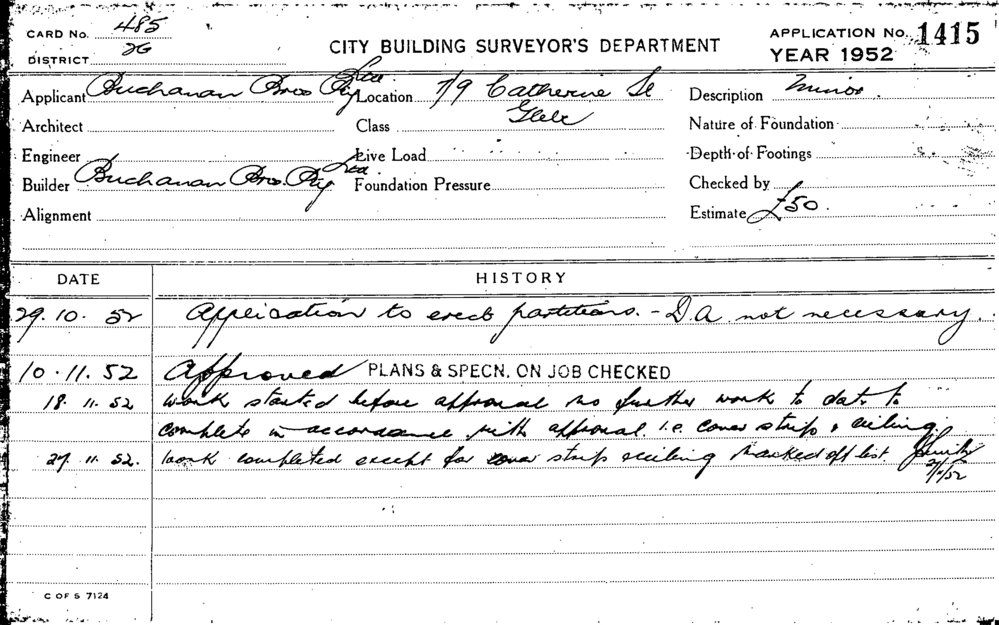 CARD No. 485
DISTRICT 26
CITY BUILDING SURVEYOR'S DEPARTMENT
APPLICATION No. 1415
YEAR 1952
Applicant Buchanan Bros Pty Ltd. Location 7/9 Catherine St Glebe Description Minor.
Architect Class Nature of Foundation
Engineer Live Load Depth of Footings
Builder Buchanan Bros. Pty Ltd. Foundation Pressure Checked by
Alignment Estimate £50.
DATE HISTORY
29.10.52 Application to erect partitions. - D.A. not necessary.
10.11.52 Approved PLANS & SPECN. ON JOB CHECKED
18.11.52 Work started before approval no further work to date to
complete in accordance with approval i.e. cover strip & ceiling
27.11.52. Work completed except for cover strip ceiling Marked off list
C OF S 7124